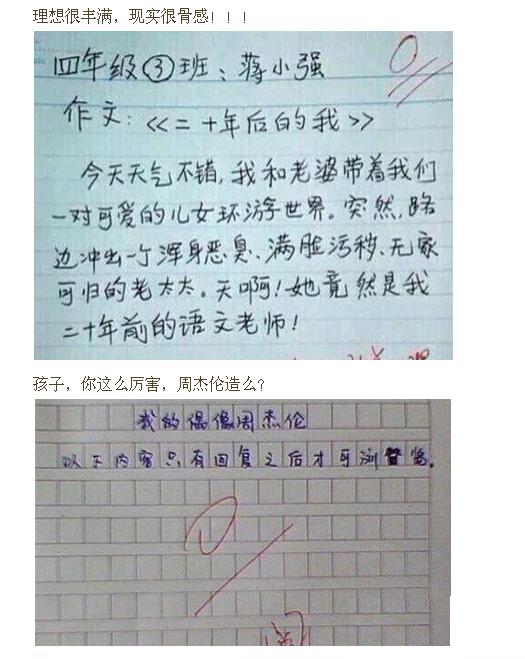 理想很丰满，现实很骨感！！！
四年级③班：蒋小强
作文：<<二十年后的我>>
今天天气不错，我和老婆带着我们
一对可爱的儿女环游世界。突然，路
边冲出一个浑身恶臭、满脸污秽、无家
可归的老太太。天啊！她竟然是我
二十年前的语文老师！
孩子，你这么厉害，周杰伦造么？
我的偶像周杰伦
以下内容只有回复之后才可浏览。
阅